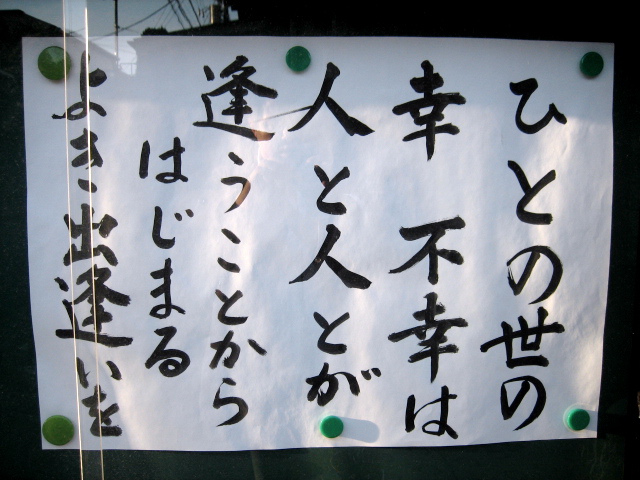 ひとの世の
幸 不幸は
人と人とが
逢うことから
はじまる
よき出逢いを